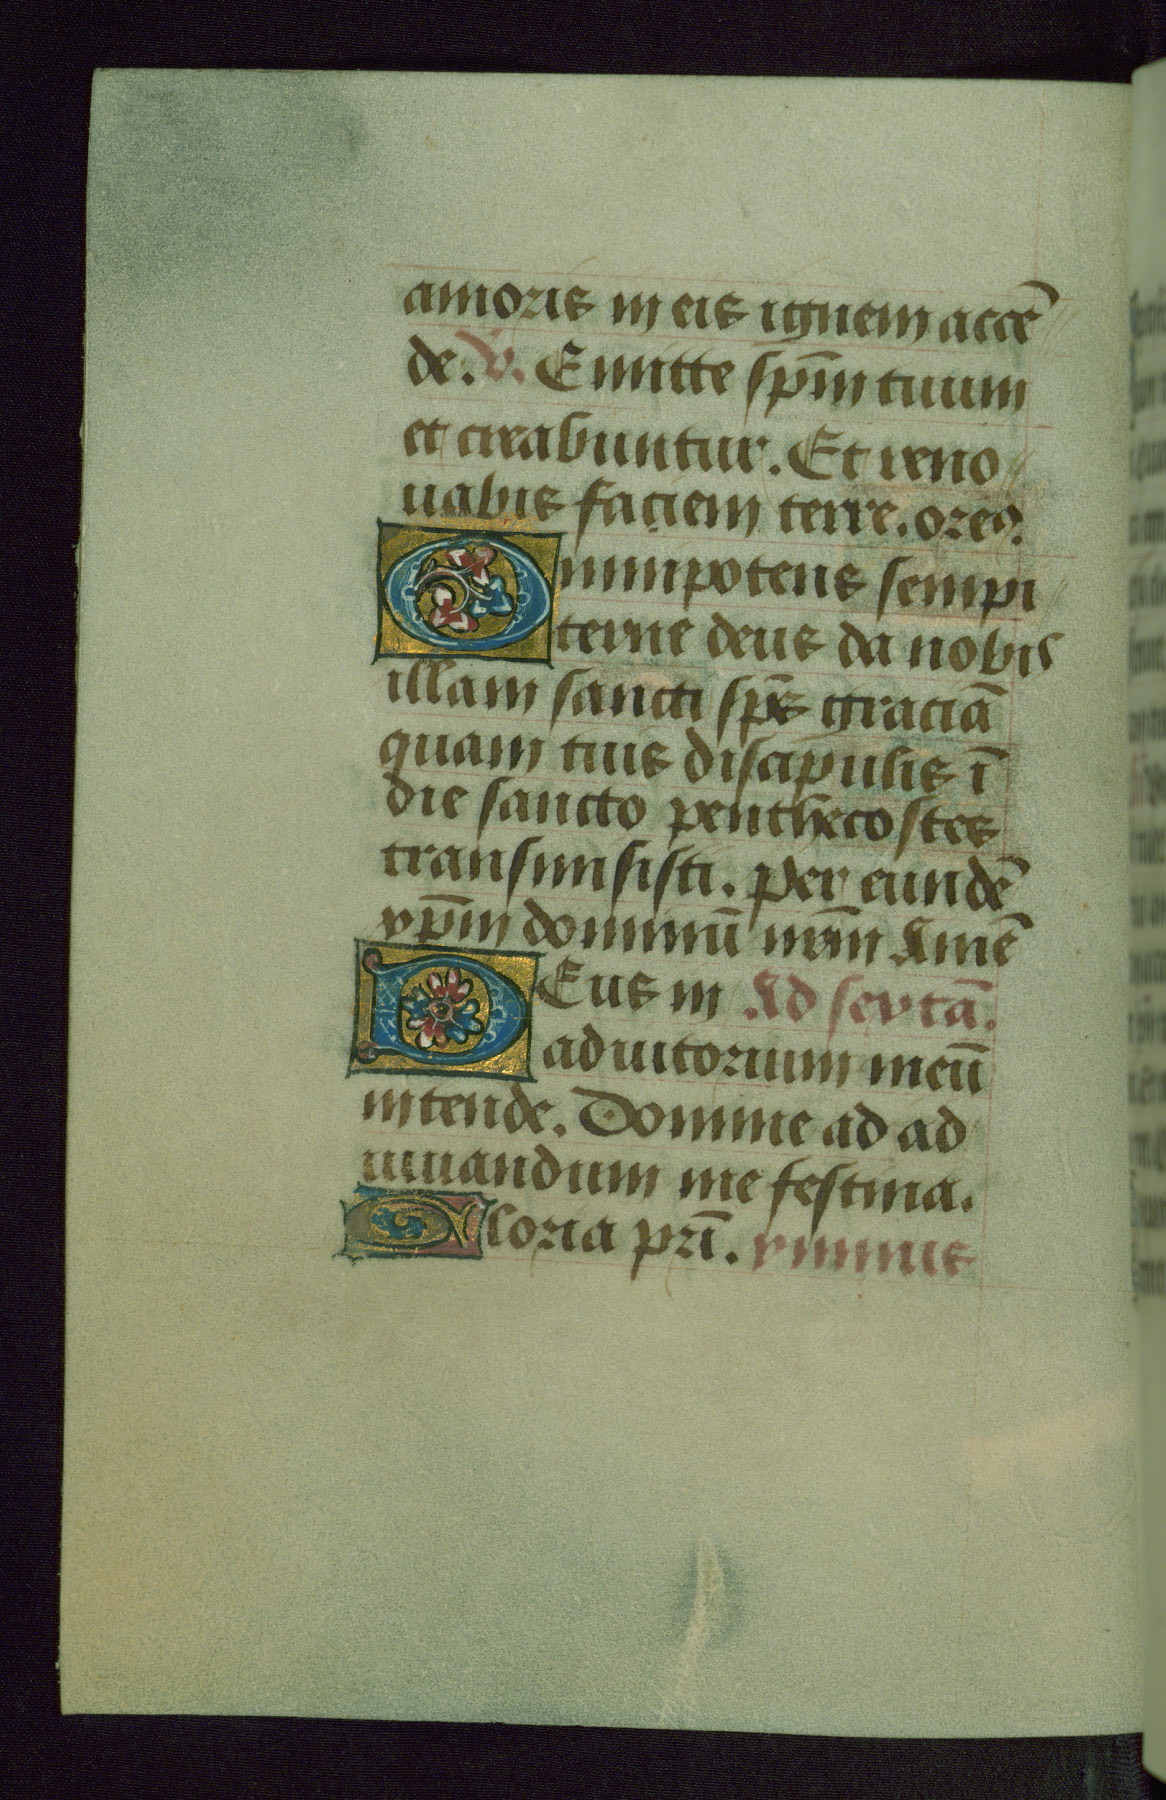 amoris in eis ignem accē
de. V. Emitte spm̄ tuum
et creabuntur. Et reno
uabis faciem terre. oreꝯ.
Omnipotens sempi
terne deus da nobis
illam sancti sp̄s graciā
quam tuis discipulis ī
die sancto penthecostes
transmisisti. Per eundē
xp̄m dominū nr̄m Amē
DEus in Ad sextā.
adiutorium meū
intende. Domine ad ad
iuuandum me festina.
Gloria pr̄i. ymnus